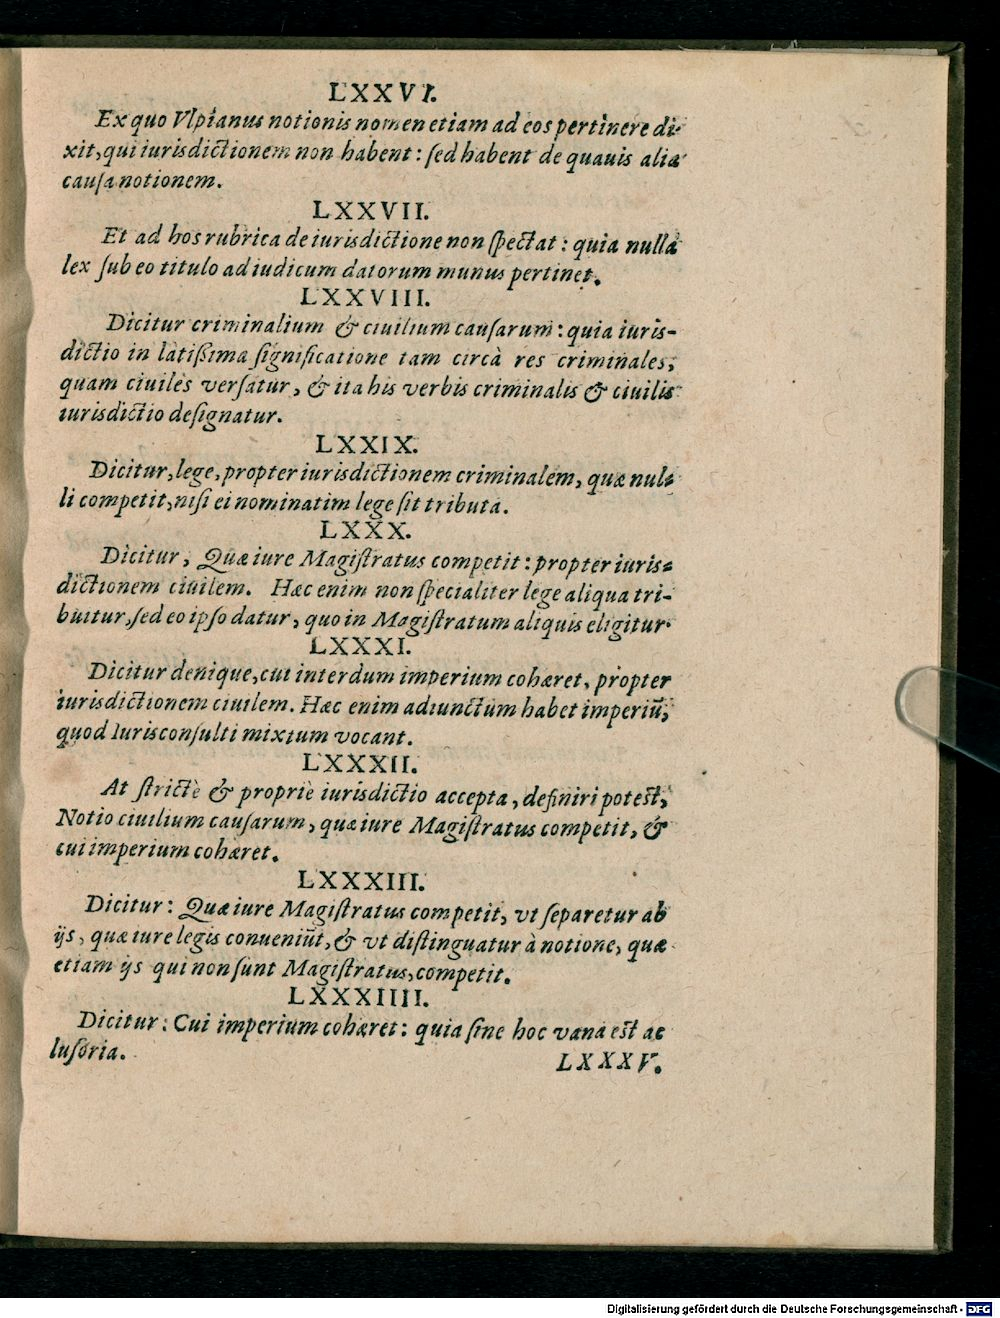 LXXVI.
Ex quo Vlpianus notionis nomen etiam ad eos pertinere di-
xit, qui iurisdictionem non habent: ſed habent de quauis alia
cauſa notionem.
LXXVII.
Et ad hos rubrica de iurisdictione non ſpectat: quia nulla
lex ſub eo titulo ad iudicum datorum munus pertinet.
LXXVIII.
Dicitur criminalium & ciuilium cauſarum: quia iuris-
dictio in latiſsima ſignificatione tam circà res criminales,
quam ciuiles verſatur, & ita his verbis criminalis & ciuilis
iurisdictio deſignatur.
LXXIX.
Dicitur, lege, propter iurisdictionem criminalem, quæ nul-
li competit, niſi ei nominatim lege ſit tributa.
LXXX.
Dicitur, Quæ iure Magiſtratus competit: propter iuris-
dictionem ciuilem. Hæc enim non ſpecialiter lege aliqua tri-
buitur, ſed eo ipſo datur, quo in Magiſtratum aliquis eligitur.
LXXXI.
Dicitur denique, cui interdum imperium cohæret, propter
iurisdictionem ciuilem. Hæc enim adiunctum habet imperiũ,
quod Iurisconſulti mixtum vocant.
LXXXII.
At ſtrictè & propriè iurisdictio accepta, definiri poteſt,
Notio ciuilium cauſarum, quæ iure Magiſtratus competit, &
cui imperium cohæret.
LXXXIII.
Dicitur: Quæ iure Magiſtratus competit, vt ſeparetur ab
ijs, quæ iure legis conueniũt, & vt diſtinguatur à notione, quæ
etiam ijs qui non ſunt Magiſtratus, competit.
LXXXIIII.
Dicitur: Cui imperium cohæret: quia ſine hoc vana eſt ac
luſoria.
LXXXV.
Digitalisierung gefördert durch die Deutsche Forschungsgemeinschaft - DFG